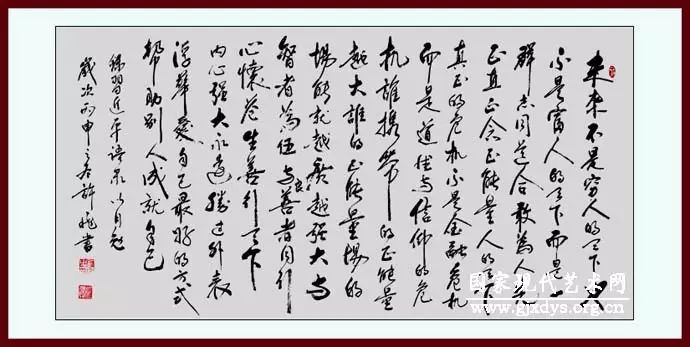 未来不是穷人的天下又
不是富人的天下而是一
群志同道合敢為人先
正直正念正能量人的天下
真正的危机不是金融危机
而是道德与信仰的危
机誰携帶的正能量
越大誰的正能量場的
場能就越廣越强大与
智者為伍与良善者同行
心懷苍生善行天下
内心强大永遠勝过外表
浮華爱自己最好的方式
帮助别人成就自己
錄習近平語录以自勉
歲次丙申之冬許書
国家现代艺术网
www.gjxdys.org.cn